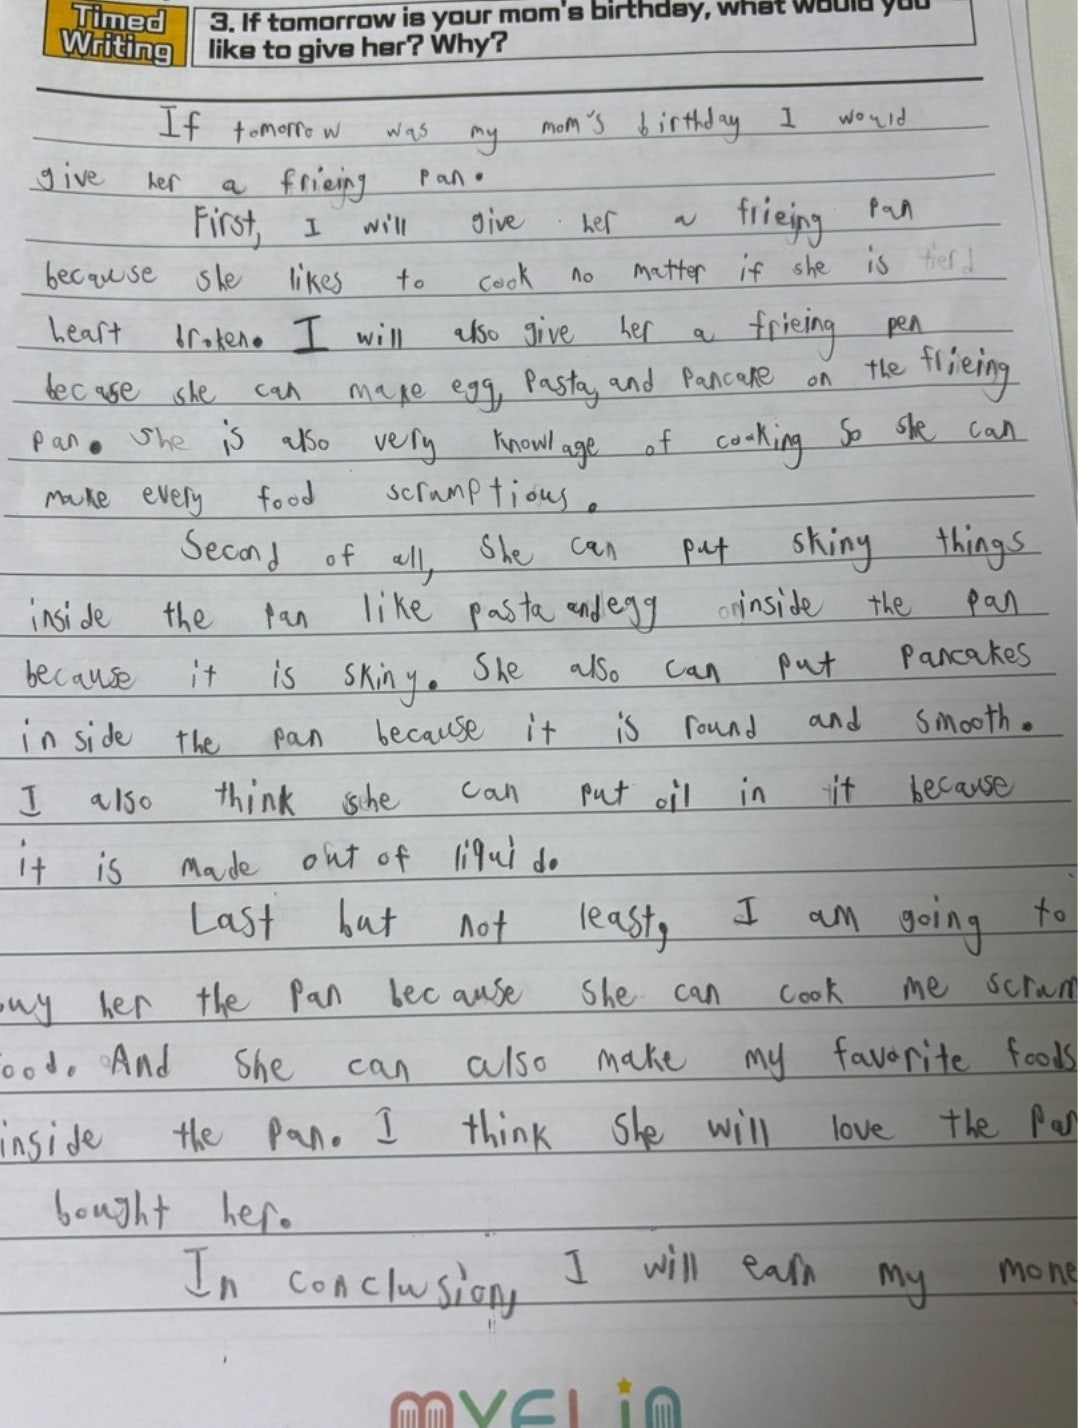 Timed
Writing
3. If tomorrow is your mom's birthday, what would you
like to give her? Why?
If tomorrow was my mom's birthday I would
give her a frieing pan.
First, I will give her a frieing pan
because she likes to cook no matter if she is tierd
heart broken. I will also give her a frieing pen
becase she can make egg, pasta, and pancake on the frieing
pan. She is also very knowlage of cooking so she can
make every food scrumptious.
Second of all, she can put skiny things
inside the pan like pasta and egg inside the pan
because it is skiny. She also can put pancakes
inside the pan because it is round and smooth.
I also think she can put oil in it because
it is made out of liquid.
Last but not least, I am going to
buy her the pan because she can cook me scrum
ood. And she can also make my favorite foods
inside the pan. I think she will love the pan
bought her.
In conclusion, I will earn my mone
MYELIN